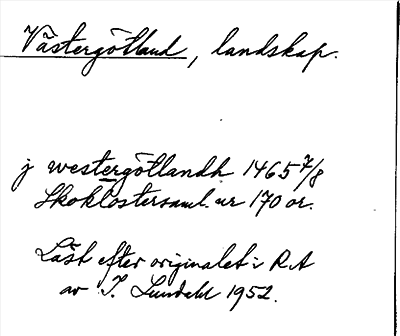 Västergötland, landskap.
j westergötlandh 1465 7/8
Skoklostersaml. ur 170 or.
Läst efter originalet i R.A
av I. Lundahl 1952.